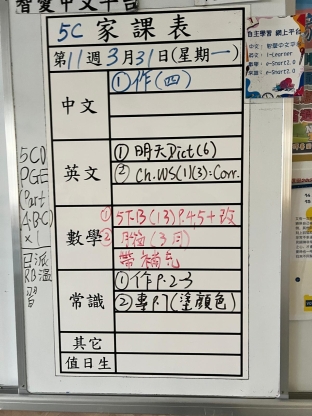 智愛中文平台
5C 家課表
第11週3月31日(星期一)
中文
①作(四)
英文
①明天Dict(6)
②Ch.WS(1)(3):Corr.
數學
①5下B(13)P.45+改
②
常識
①作P.2-3
②專P.7(塗顏色)
其它
值日生
5CD
PGE
(Part
A,B,C)
×1
已派
自主學習 網上平台
中文:智愛中文平台
英文:i-Learner
數學:e-Smart2.0
常識:e-Smart2.0